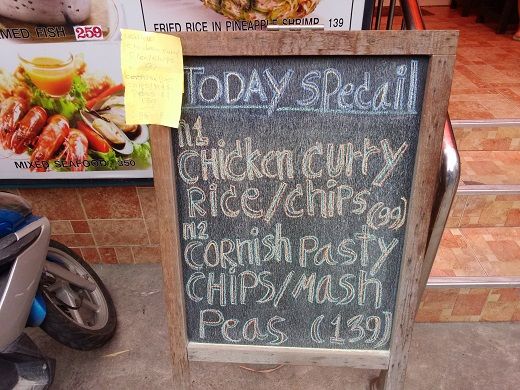 MED FISH 259
FRIED RICE IN PINEAPPLE SHRIMP 139
MIXED SEAFOOD 350
TODAY SPecail
n1
CHicken Curry
Rice/chips (99)
n2
CORNisH Pasty
CHIPS/Mash
Peas (139)